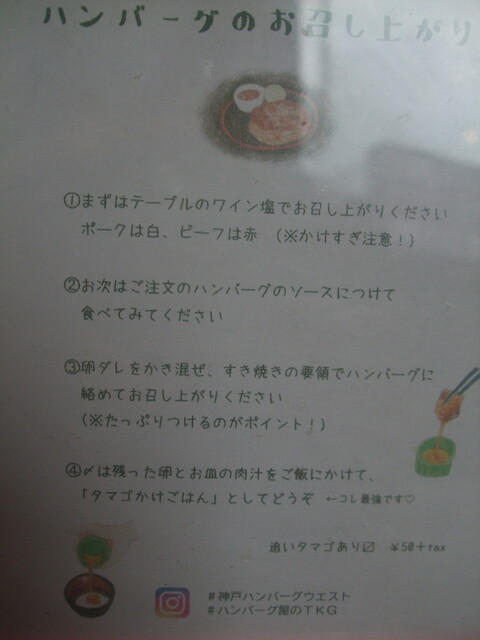 ハンバーグのお召し上がり
①まずはテーブルのワイン塩でお召し上がりください
ポークは白、ビーフは赤 (※かけすぎ注意!)
②お次はご注文のハンバーグのソースにつけて
食べてみてください
③卵ダレをかき混ぜ、すき焼きの要領でハンバーグに
絡めてお召し上がりください
(※たっぷりつけるのがポイント!)
④〆は残った卵とお皿の肉汁をご飯にかけて、
「タマゴかけごはん」としてどうぞ ←コレ最強です♡
追いタマゴあり〼 ¥50+tax
#神戸ハンバーグウエスト
#ハンバーグ屋のTKG